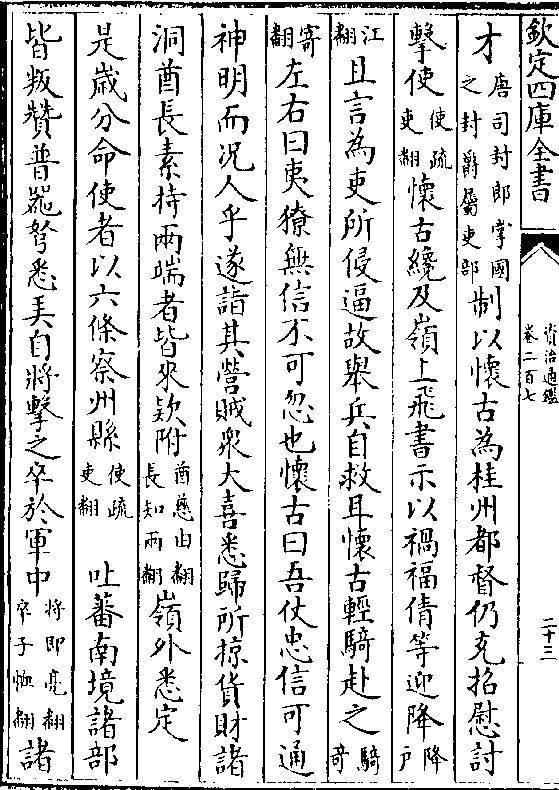 欽定四庫全書
資治通鑑
卷二百七
二十三
才唐司封郎掌國之封爵屬吏部制以懷古為桂州都督仍充招慰討
擊使使疏吏翻懷古纔及嶺上飛書示以禍福倩等迎降降戶
江翻且言為吏所侵逼故舉兵自救耳懷古輕騎赴之騎奇
寄翻左右曰夷獠無信不可忽也懷古曰吾仗忠信可通
神明而况人乎遂詣其營賊衆大喜悉歸所掠貨財諸
洞酋長素持兩端者皆來欵附酋慈由翻長知兩翻嶺外悉定
是歳分命使者以六條察州縣使疏吏翻 吐蕃南境諸部
皆叛贊普器弩悉弄自將擊之卒於軍中將即亮翻卒子恤翻諸